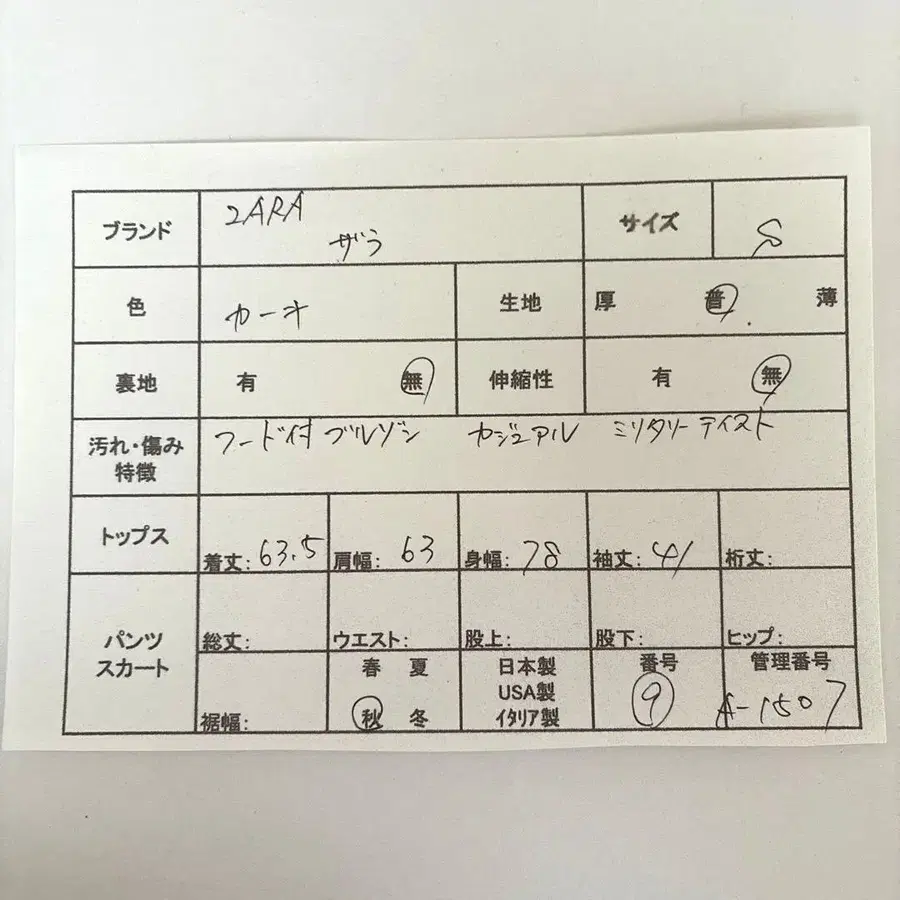 ブランド ZARA サイズ S
ザラ
色 カーキ 生地 厚 普 薄
裏地 有 無 伸縮性 有 無
汚れ・傷み フード付ブルゾン カジュアル ミリタリーテイスト
特徴
トップス 着丈:63.5 肩幅:63 身幅:78 袖丈:41 裄丈:
パンツ
スカート
総丈: ウエスト: 股上: 股下: ヒップ:
裾幅:
春 夏
秋 冬
日本製
USA製
イタリア製
番号
9
管理番号
A-1507